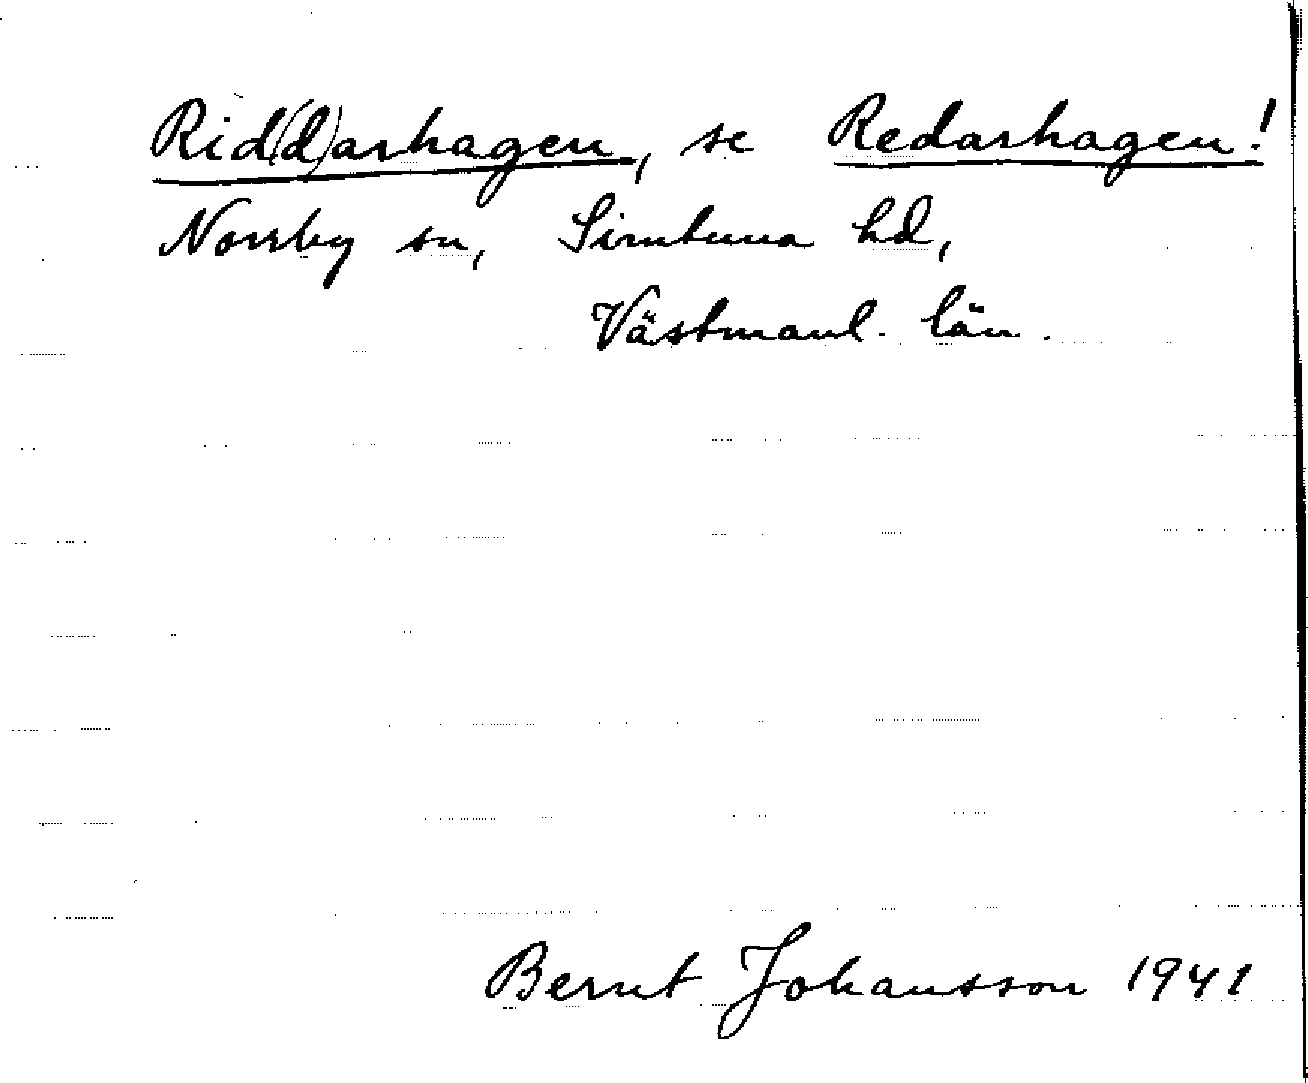 Rid(d)arhagen, se Redarhagen!
Norrby sn, Simtuna hd,
Västmanl. län.
Bernt Johansson 1941